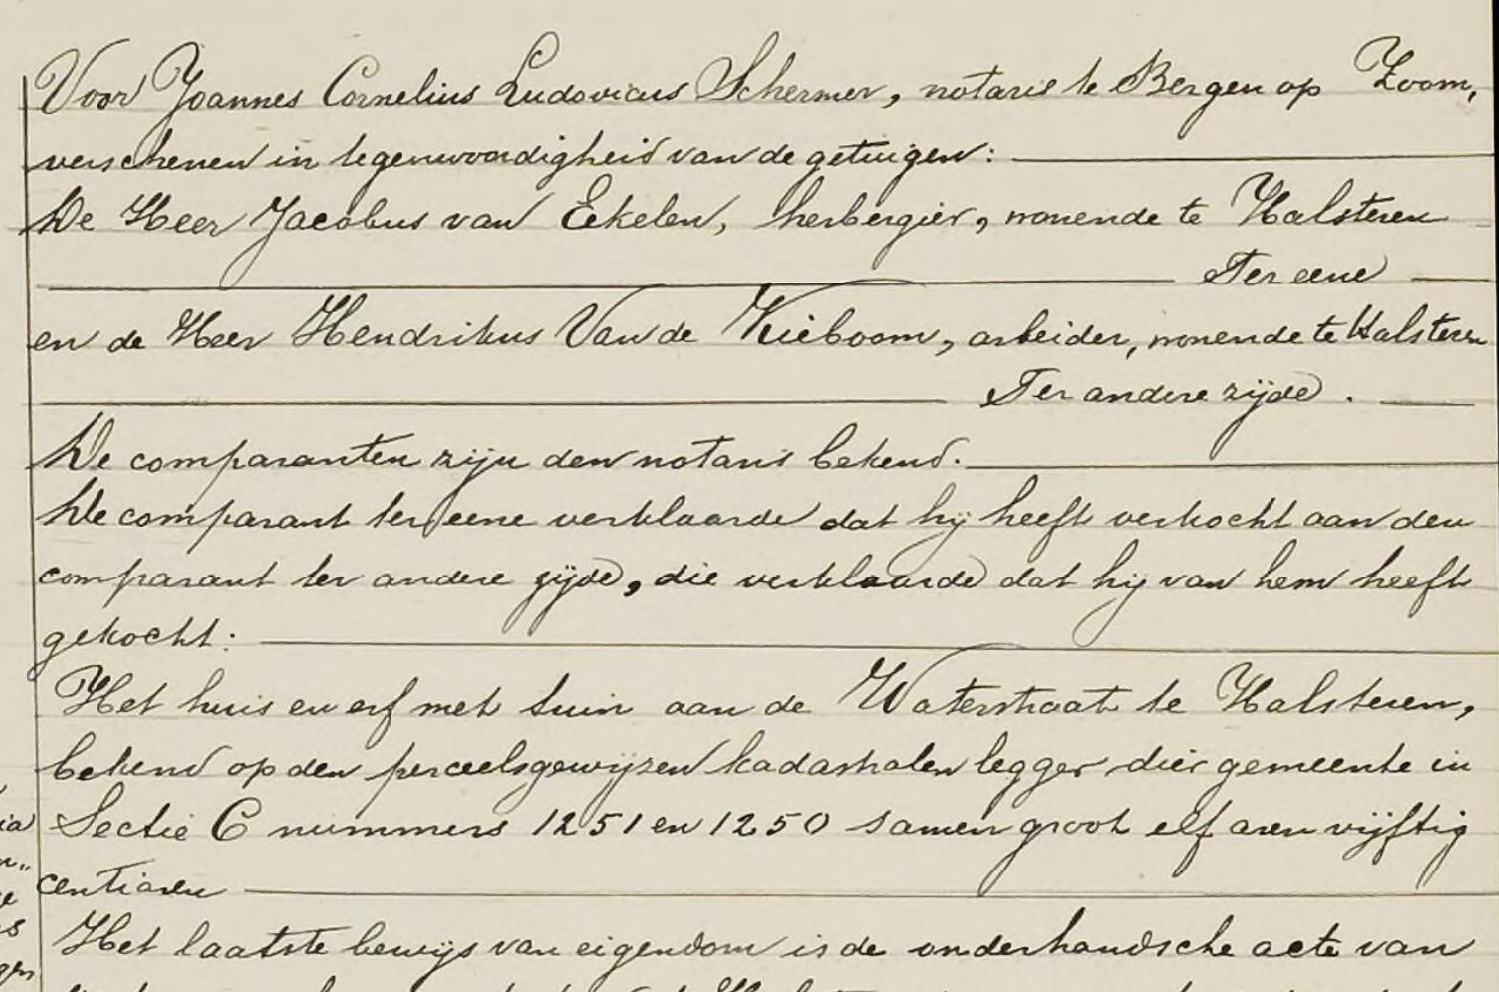 Voor Joannes Cornelius Ludovicus Schermer, notaris te Bergen op Zoom,
verschenen in tegenwoordigheid van de getuigen:
De Heer Jacobus van Eekelen, herbergier, wonende te Halsteren
Ter eene
en de Heer Hendrikus Van de Kieboom, arbeider, wonende te Halsteren
Ter andere zijde.
De comparanten zijn den notaris bekend.
De comparant ter eene verklaarde dat hij heeft verkocht aan den
comparant ter andere zijde, die verklaarde dat hij van hem heeft
gekocht:
Het huis en erf met tuin aan de Waterstraat te Halsteren,
bekend op den perceelsgewijzen kadastralen legger dier gemeente in
Sectie C nummers 1251 en 1250 samen groot elf aren vijftig
centiaren
Het laatste bewijs van eigendom is de onderhandsche acte van